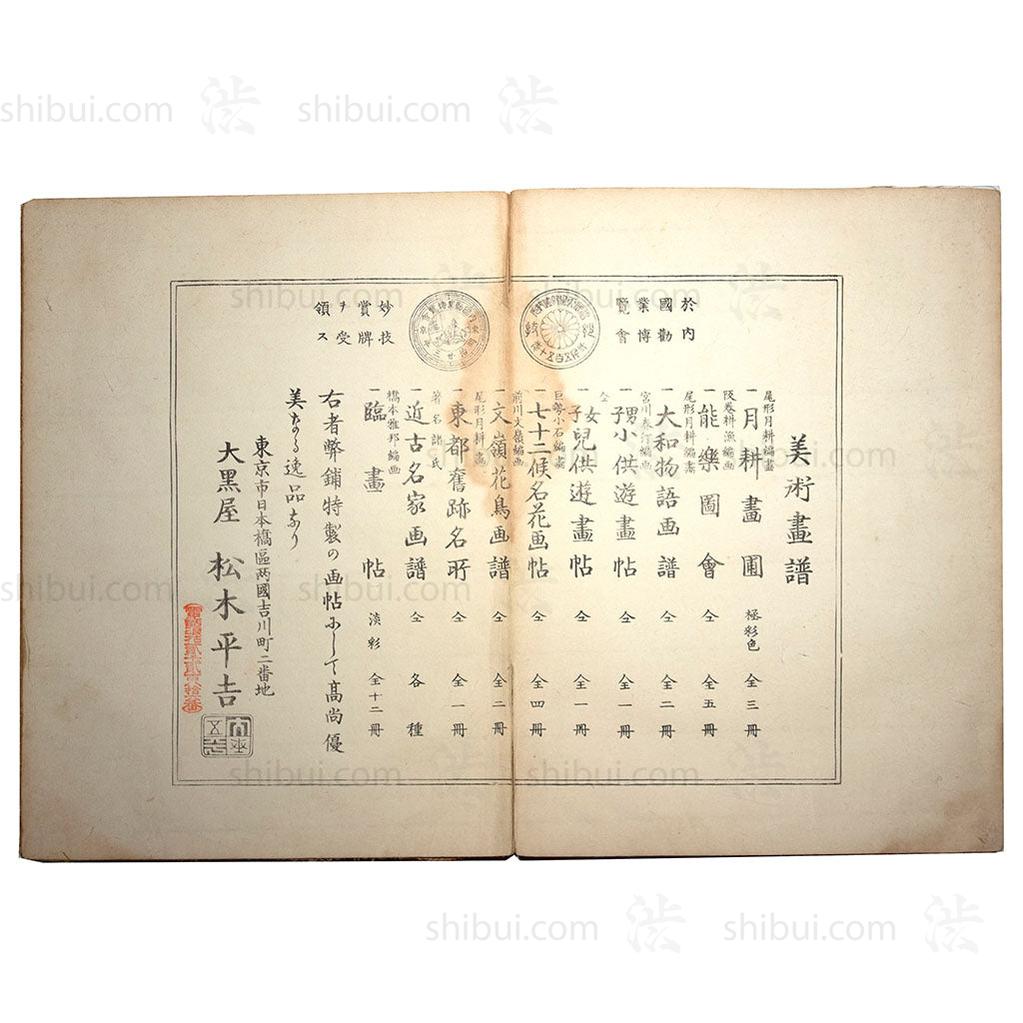 shibui.com 渋 shibui.com 渋
於内
國勸
業博
覽會
妙技
賞牌
ヲ受
領ス
美術畫譜
尾形月耕編畫
一月耕畫圃 極彩色 全三冊
坂巻耕漁編画
一能樂圖會 仝 全五冊
尾形月耕編畫
一大和物語画譜 仝 全二冊
宮川春汀編画
一男子小供遊畫帖 仝 全一冊
仝
一女子兒供遊畫帖 仝 全一冊
巨勢小石編畫
一七十二候名花画帖 仝 全四冊
前川文嶺編画
一文嶺花鳥画譜 仝 全二冊
尾形月耕畫
一東都舊跡名所 仝 全一冊
著名諸氏
一近古名家画譜 仝 各種
橋本雅邦編画
一臨畫帖 淡彩 全十二冊
右者弊鋪特製の画帖にして高尚優
美なる逸品なり
東京市日本橋區两國吉川町二番地
大黒屋 松木平吉
shibui.com 渋 shibui.com 渋
shibui.com 渋 shibui.com 渋
shibui.com 渋 shibui.com 渋
shibui.com 渋 shibui.com 渋